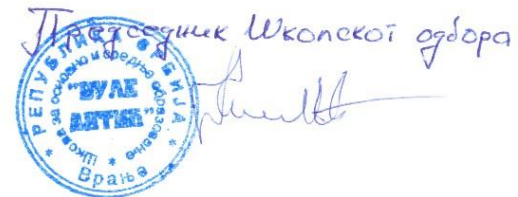 Председник Школског одбора
РЕПУБЛИКА СРБИЈА
Школа за основно и средње образовање
"ВУЛЕ
АНТИЋ"
Врање